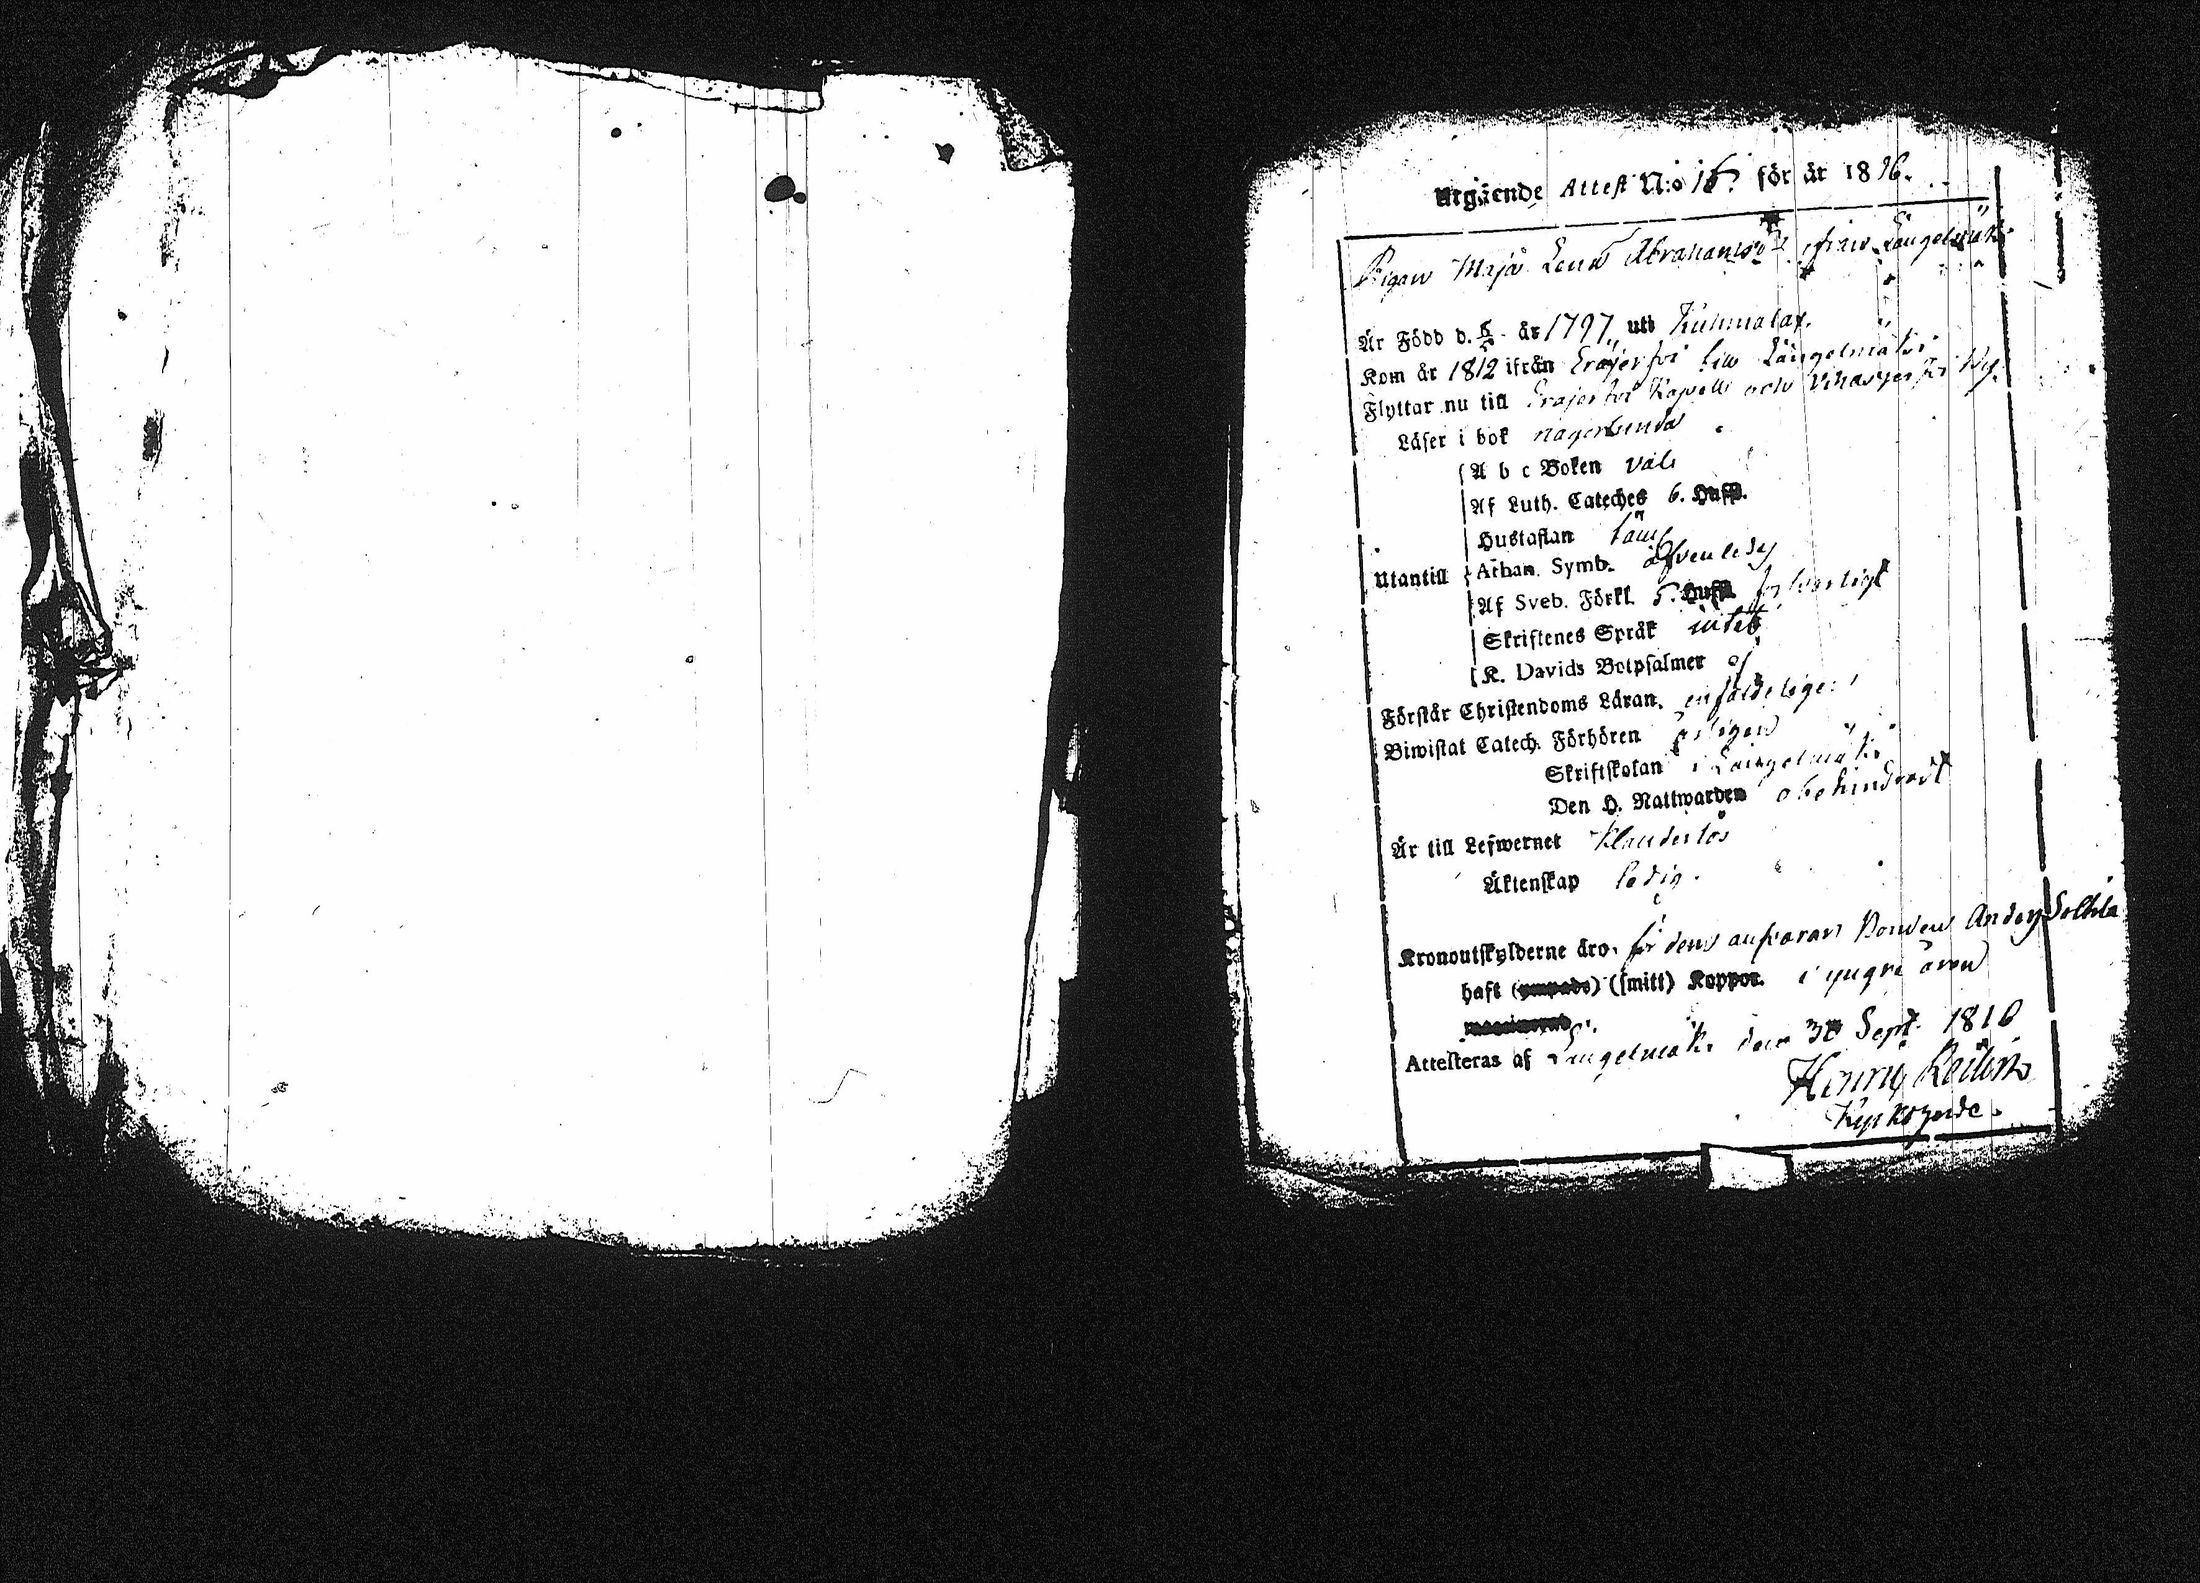 Utgående Attest N:o 15. för år 1816.
Pigan Maja Lena Abrahamsd:r ifrån Längelmäki
Är Född d. 6/5 år 1797 uti Kuhmalax.
Kom år 1812 ifrån Eräjerfvi till Längelmäki
Flyttar nu till Eräjerfvi Kapell och Vihasjerfvi by.
Läser i bok någorlunda
A b c Boken väl
Af Luth. Cateches 6. Huffst.
Hustaflan
Athan. Symb. äfvenledes
Utantill
Af Sveb. Förkl. 5. Huffst. försvarligt
Skriftenes Språk intet
K. Davids Botpsalmer
Förstår Christendoms Läran. enfaldeligen
Biwistat Catech. Förhören årligen
Skriftskolan i Längelmäki
Den H. Nattwarden obehindradt
Är till Lefwernet klanderlös
Äktenskap ledig.
Kronoutskylderne äro. för dem ansvarar Bonden Anders
haft (ympade) (smitt) Koppor. i yngre åren
Attesteras af Längelmäki den 30 Sept. 1816
Henric
Kyrkoherde.